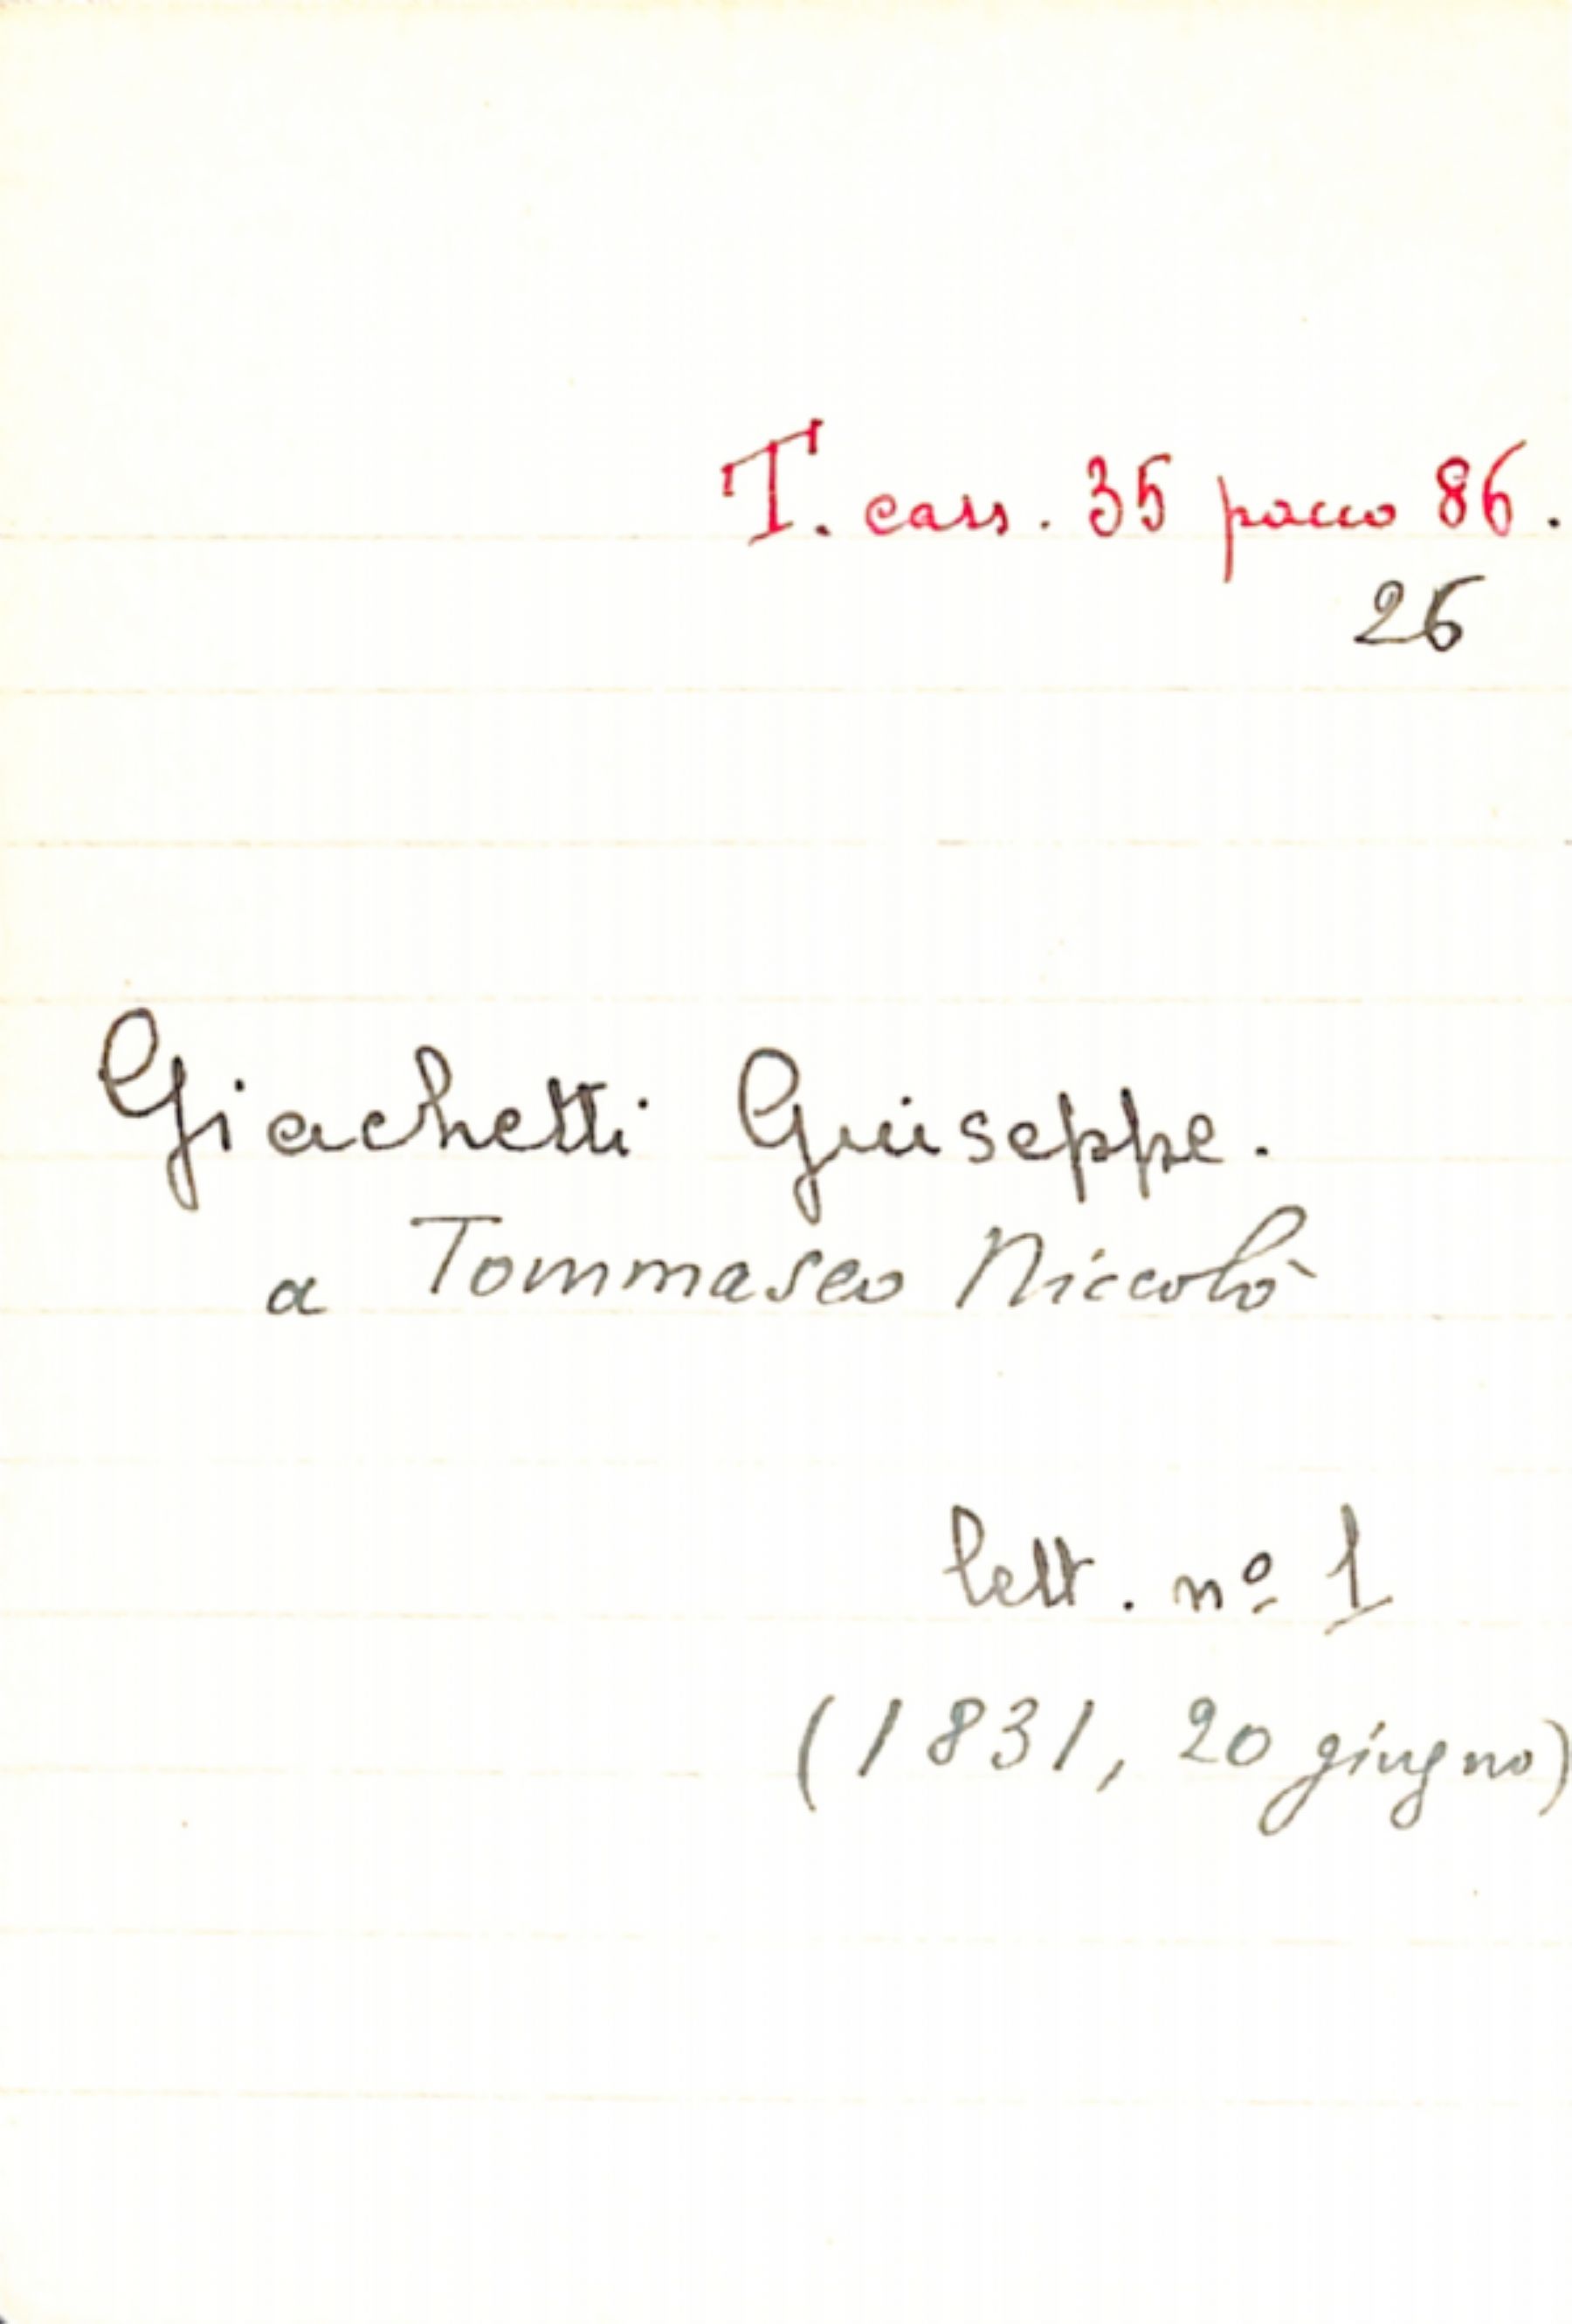 T. cass. 35 pacco 86.
26
Giachetti Giuseppe.
a Tommaseo Niccolò
lett. nº 1
(1831, 20 giugno)